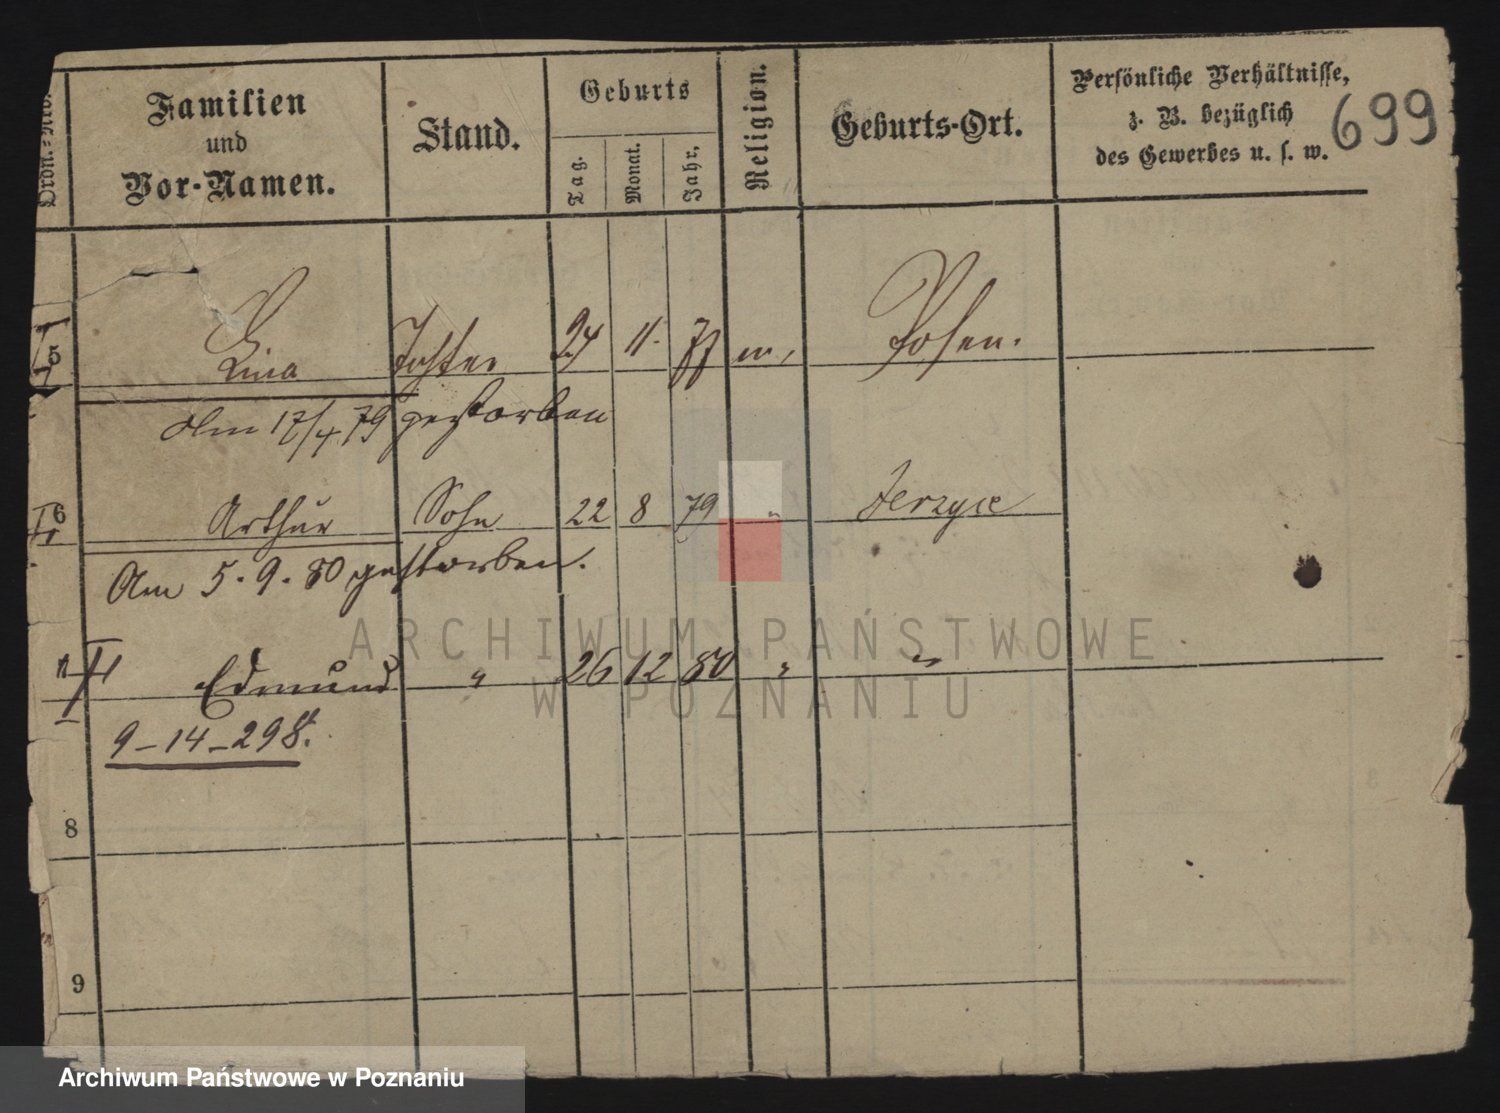 Ordn.-Nro.
Familien
und
Vor-Namen.
Stand.
Geburts
Tag.
Monat.
Jahr.
Religion.
Geburts-Ort.
Persönliche Verhältnisse,
z. B. bezüglich
des Gewerbes u. s. w.
699
5 Lina Tochter 24 11. 77 m, Posen.
Lina
Am 17/4 79 gestorben
6 Arthur Sohn 22 8 79 " Jerzyce
Am 5. 9. 80 gestorben.
Edmund " 26 12 80 " "
9-14-298.
8
9
ARCHIWUM PAŃSTWOWE
W POZNANIU
Archiwum Państwowe w Poznaniu